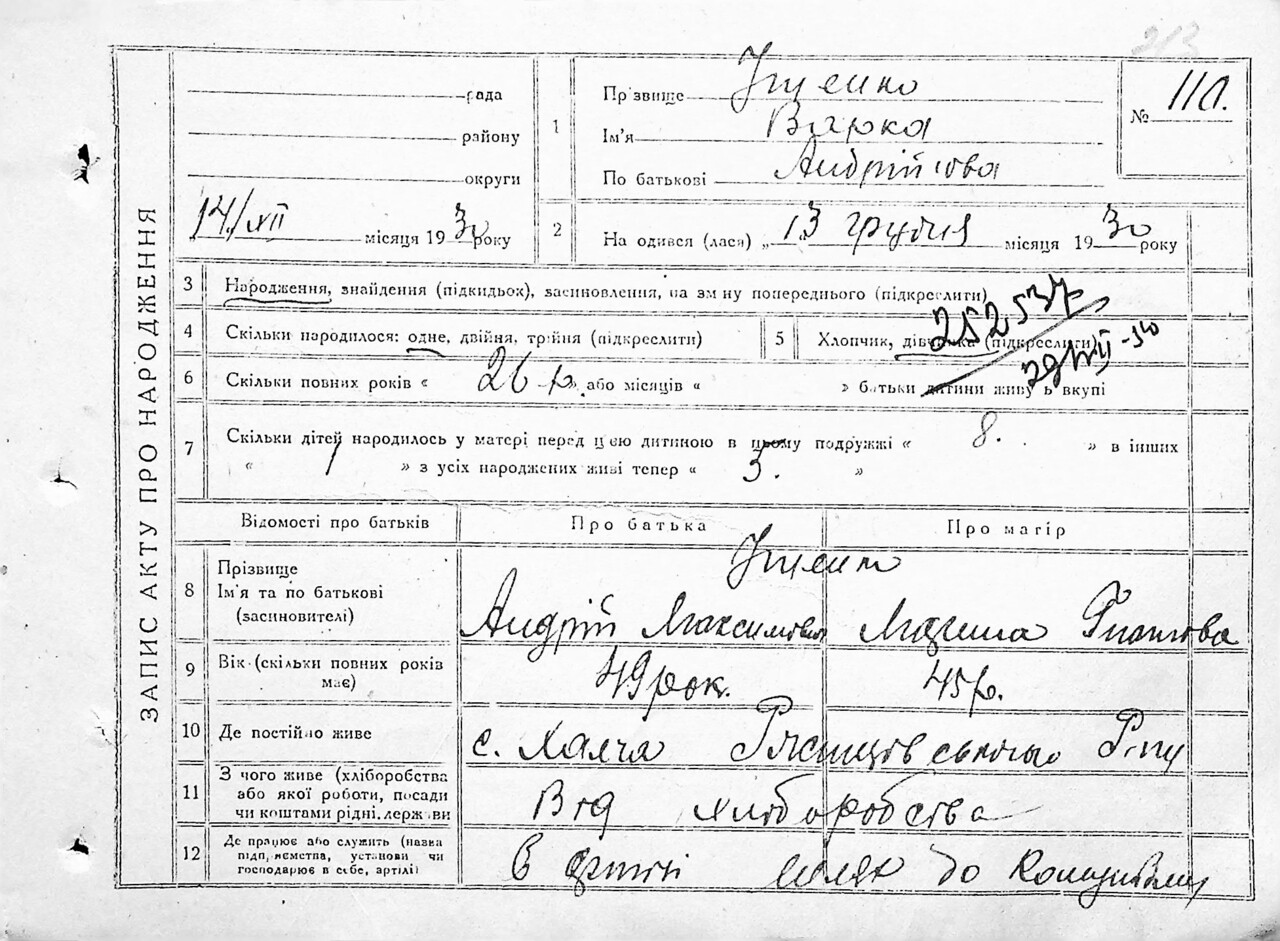 213
ЗАПИС АКТУ ПРО НАРОДЖЕННЯ
рада
району
округи
14/XII місяця 1930 року
1
Прізвище Іщенко
Ім'я Варка
По батькові Андрійова
№ 110.
2 На одився (лася) „ 13 грудня місяця 1930 року
3 Народження, знайдення (підкидьох), засиновлення, на зм ну попереднього (підкреслити)
4 Скільки народилося: одне, двійня, трійня (підкреслити)
5 Хлопчик, дівчинка (підкреслити)
252537
6 Скільки повних років « 26 р. » або місяців « » батьки дитини живу ь вкупі
7 Скільки дітей народилось у матері перед цією дитиною в цьому подружжі « 8. » в інших
« 1 » з усіх народжених живі тепер « 5. »
Відомості про батьків
Про батька
Про матір
8 Прізвище
Ім'я та по батькові
(засиновителі)
Іщенко
Андрій Максимович
9 Вік (скільки повних років
має)
49 рок.
45 р.
10 Де постійно живе
с. Халча
11 З чого живе (хліборобства
або якої роботи, посади
чи коштами рідні, держави
Від хліборобства
12 Де працює або служить (назва
підприємства, установи чи
господарює в себе, артілі)
в
до